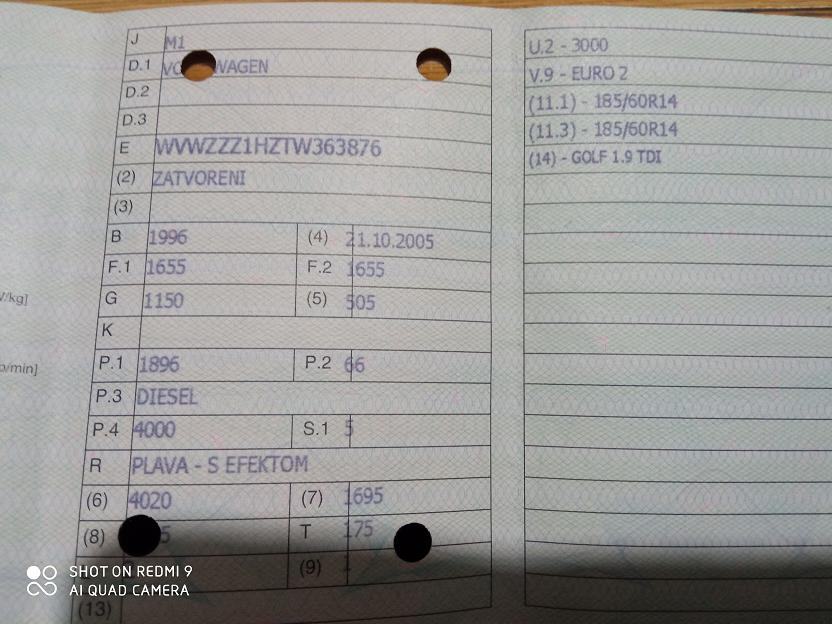 J M1
D.1 WAGEN
D.2
D.3
E WVWZZZ1HZTW363876
(2) ZATVORENI
(3)
B 1996 (4) 21.10.2005
F.1 1655 F.2 1655
G 1150 (5) 505
K
P.1 1896 P.2 66
P.3 DIESEL
P.4 4000 S.1 5
R PLAVA - S EFEKTOM
(6) 4020 (7) 1695
(8) 5 T 175
(9)
(13)
U.2 - 3000
V.9 - EURO 2
(11.1) - 185/60R14
(11.3) - 185/60R14
(14) - GOLF 1.9 TDI
/kg]
/min]
SHOT ON REDMI 9
AI QUAD CAMERA